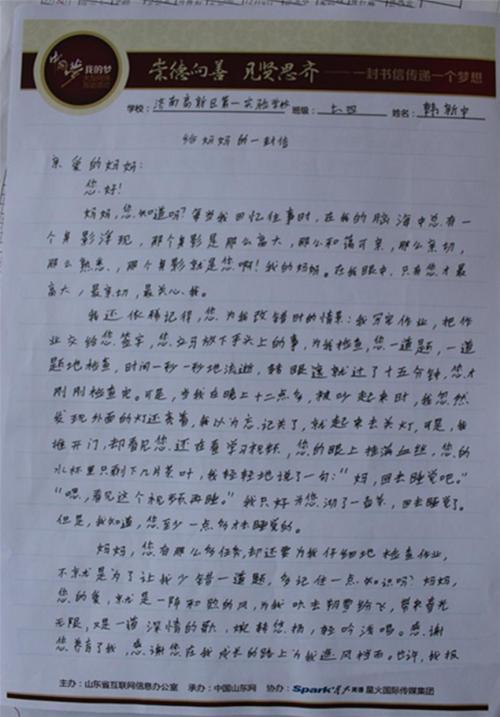 中国梦 我的梦
崇德向善 见贤思齐 ——一封书信传递一个梦想
学校：济南高新区第一实验学校 班级：七四 姓名：韩新宇
给妈妈的一封信
亲爱的妈妈：
您好！
妈妈，您知道吗？每当我回忆往事时，在我的脑海中总有一
个身影浮现，那个身影是那么高大，那么和蔼可亲，那么亲切，
那么熟悉，那个身影就是您啊！我的妈妈。在我眼中，只有您才最
高大，最亲切，最关心我。
我还依稀记得，您为我改错时的情景：我写完作业，把作
业交给您签字，您立马放下手头上的事，为我检查，您一道题，一道
题地检查，时间一秒一秒地流逝，转眼这就过了十五分钟，您才
刚刚检查完。可是，当我在晚上十二点多，被吵起来时，我忽然
发现外面的灯还亮着，我以为忘记关了，就起来去关灯，可是，我
推开门，却看见您还在看学习视频，您的眼上堆满血丝，您的
水杯里只剩下几片茶叶，我轻轻地说了一句：“妈，回去睡觉吧。”
“嗯，看完这个视频再睡。”我只好为您沏了一壶茶，回去睡觉了。
但是，我知道，您至少一点多才去睡觉的。
妈妈，您有那么多任务，却还要为我仔细地检查作业，
不就是为了让我少错一道题，多记住一点知识吗？妈妈，
您的爱，就是一阵和煦的风，为我吹去朝雾纷飞，带来春光
无限，又是一道深情的歌，婉转悠扬，轻吟浅唱。感谢
您养育了我，感谢您在我成长的路上为我遮风挡雨。也许，我报
主办：山东省互联网信息办公室 承办：中国山东网 协办：Spark星火英语 星火国际传媒集团